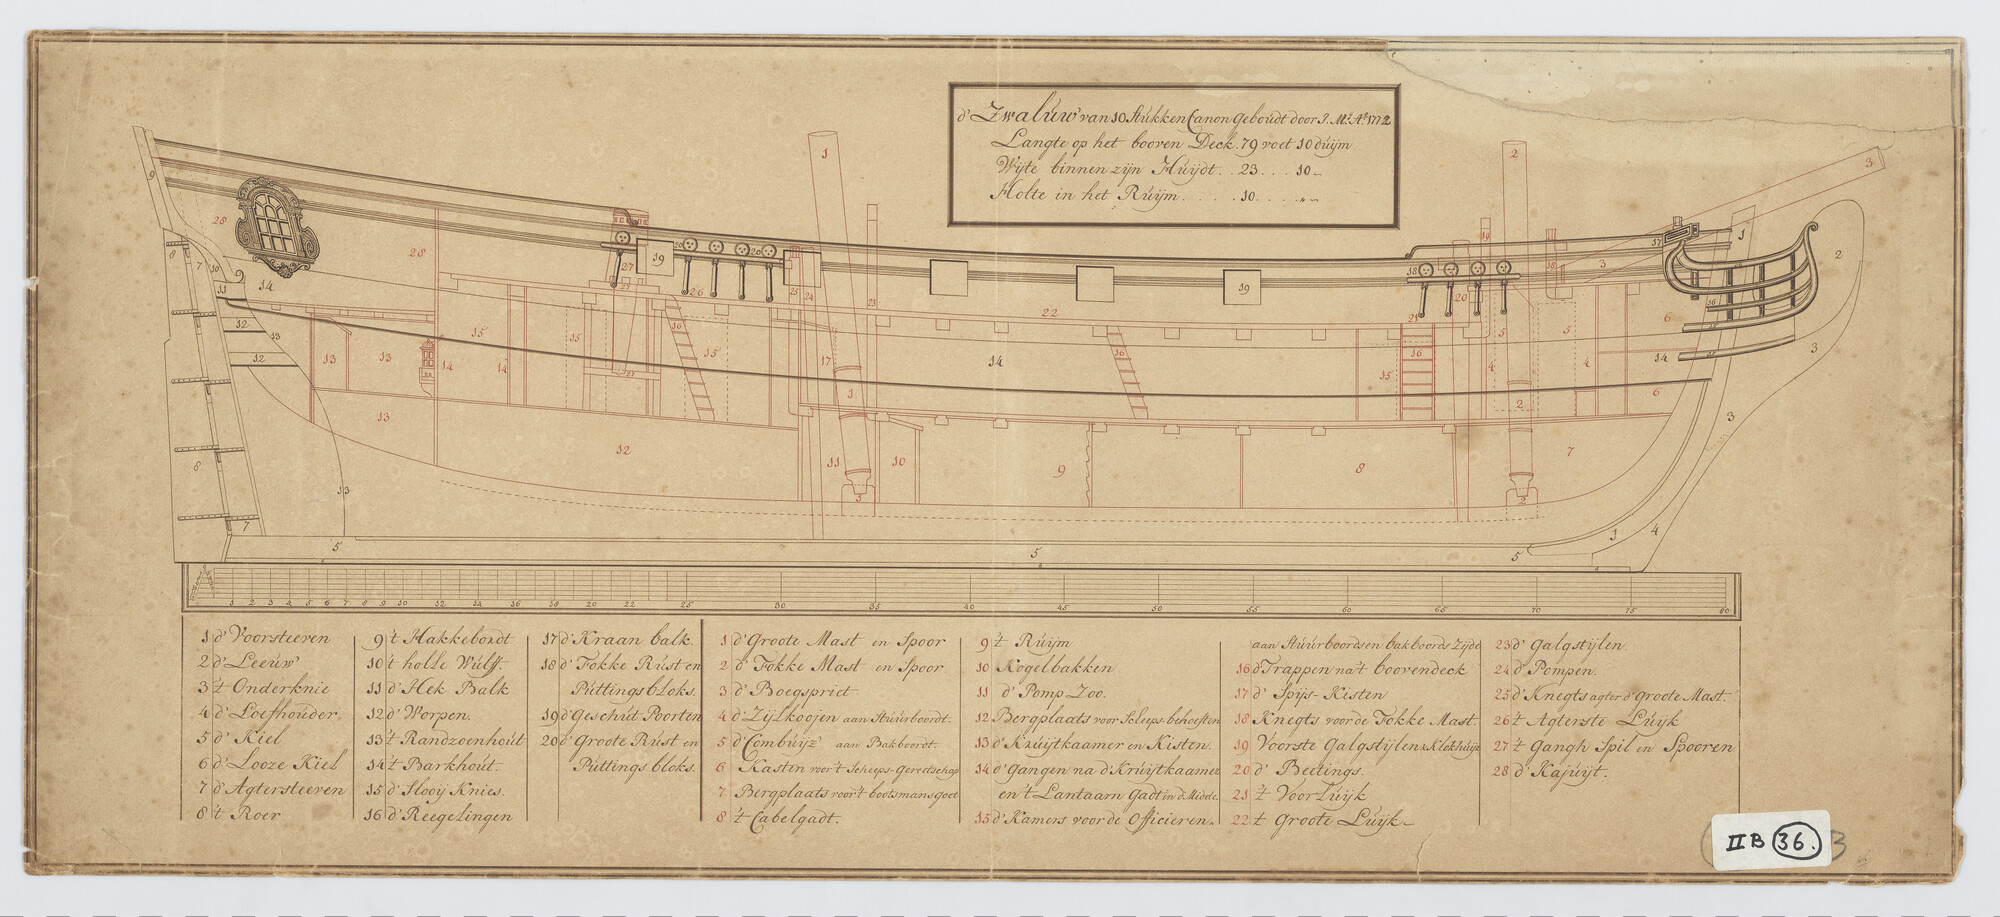 d' Zwaluw van 10 Stukken Canon Geboudt door J. M.ʳ Aº 1772
Langte op het booven Deck. 79 voet 10 duijm
Wijte binnen zijn Huijdt. . 23 . . . 10 „
Holte in het Ruijm . . . . . 10 . . . . „ „
1 d' Voorsteeven
2 d' Leeuw
3 't Onderknie
4 d' Loefhouder
5 d' Kiel
6 d' Looze Kiel
7 d' Agtersteeven
8 't Roer
9 't Hakkebordt
10 't holle Wulff.
11 d' Hek Balk
12 d' Worpen.
13 't Randzoenhout
14 't Barkhout.
15 d' Slooij Knies.
16 d' Reegelingen
17 d' Kraan balk.
18 d' Fokke Rust en
Puttings bloks.
19 d' Geschut Poorten
20 d' Groote Rust en
Puttings bloks.
1 d' Groote Mast en Spoor
2 d' Fokke Mast en Spoor
3 d' Boegspriet
4 d' Zijlkoojen aan Stuurboordt.
5 d' Combuijz aan Bakboordt.
6 Kasten voor 't Scheeps-Gereetschap
7 Bergplaats voor 't bootsmans goet
8 't Cabelgadt.
9 't Ruijm
10 Kogelbakken
11 d' Pomp Zoo.
12 Bergplaats voor Scheeps-behoeften
13 d' Kruijtkaamer en Kisten.
14 d' Gangen na d' Kruijtkaamer
en 't Lantaarn Gadt in d. Midde.
15 d' Kamers voor de Officieren.
aan Stuurboords en bakboords Zijde
16 d' Trappen na 't boovendeck
17 d' Spijs-Kisten
18 Knegts voor de Fokke Mast.
19 Voorste Galgstijlen & Klokhuijs
20 d' Beetings.
21 't Voor Luijk
22 't Groote Luijk
23 d' Galgstijlen
24 d' Pompen.
25 d' Knegts agter d' Groote Mast.
26 't Agterste Luijk
27 't Gangh Spil en Spooren
28 d' Kajuijt.
II B 36.